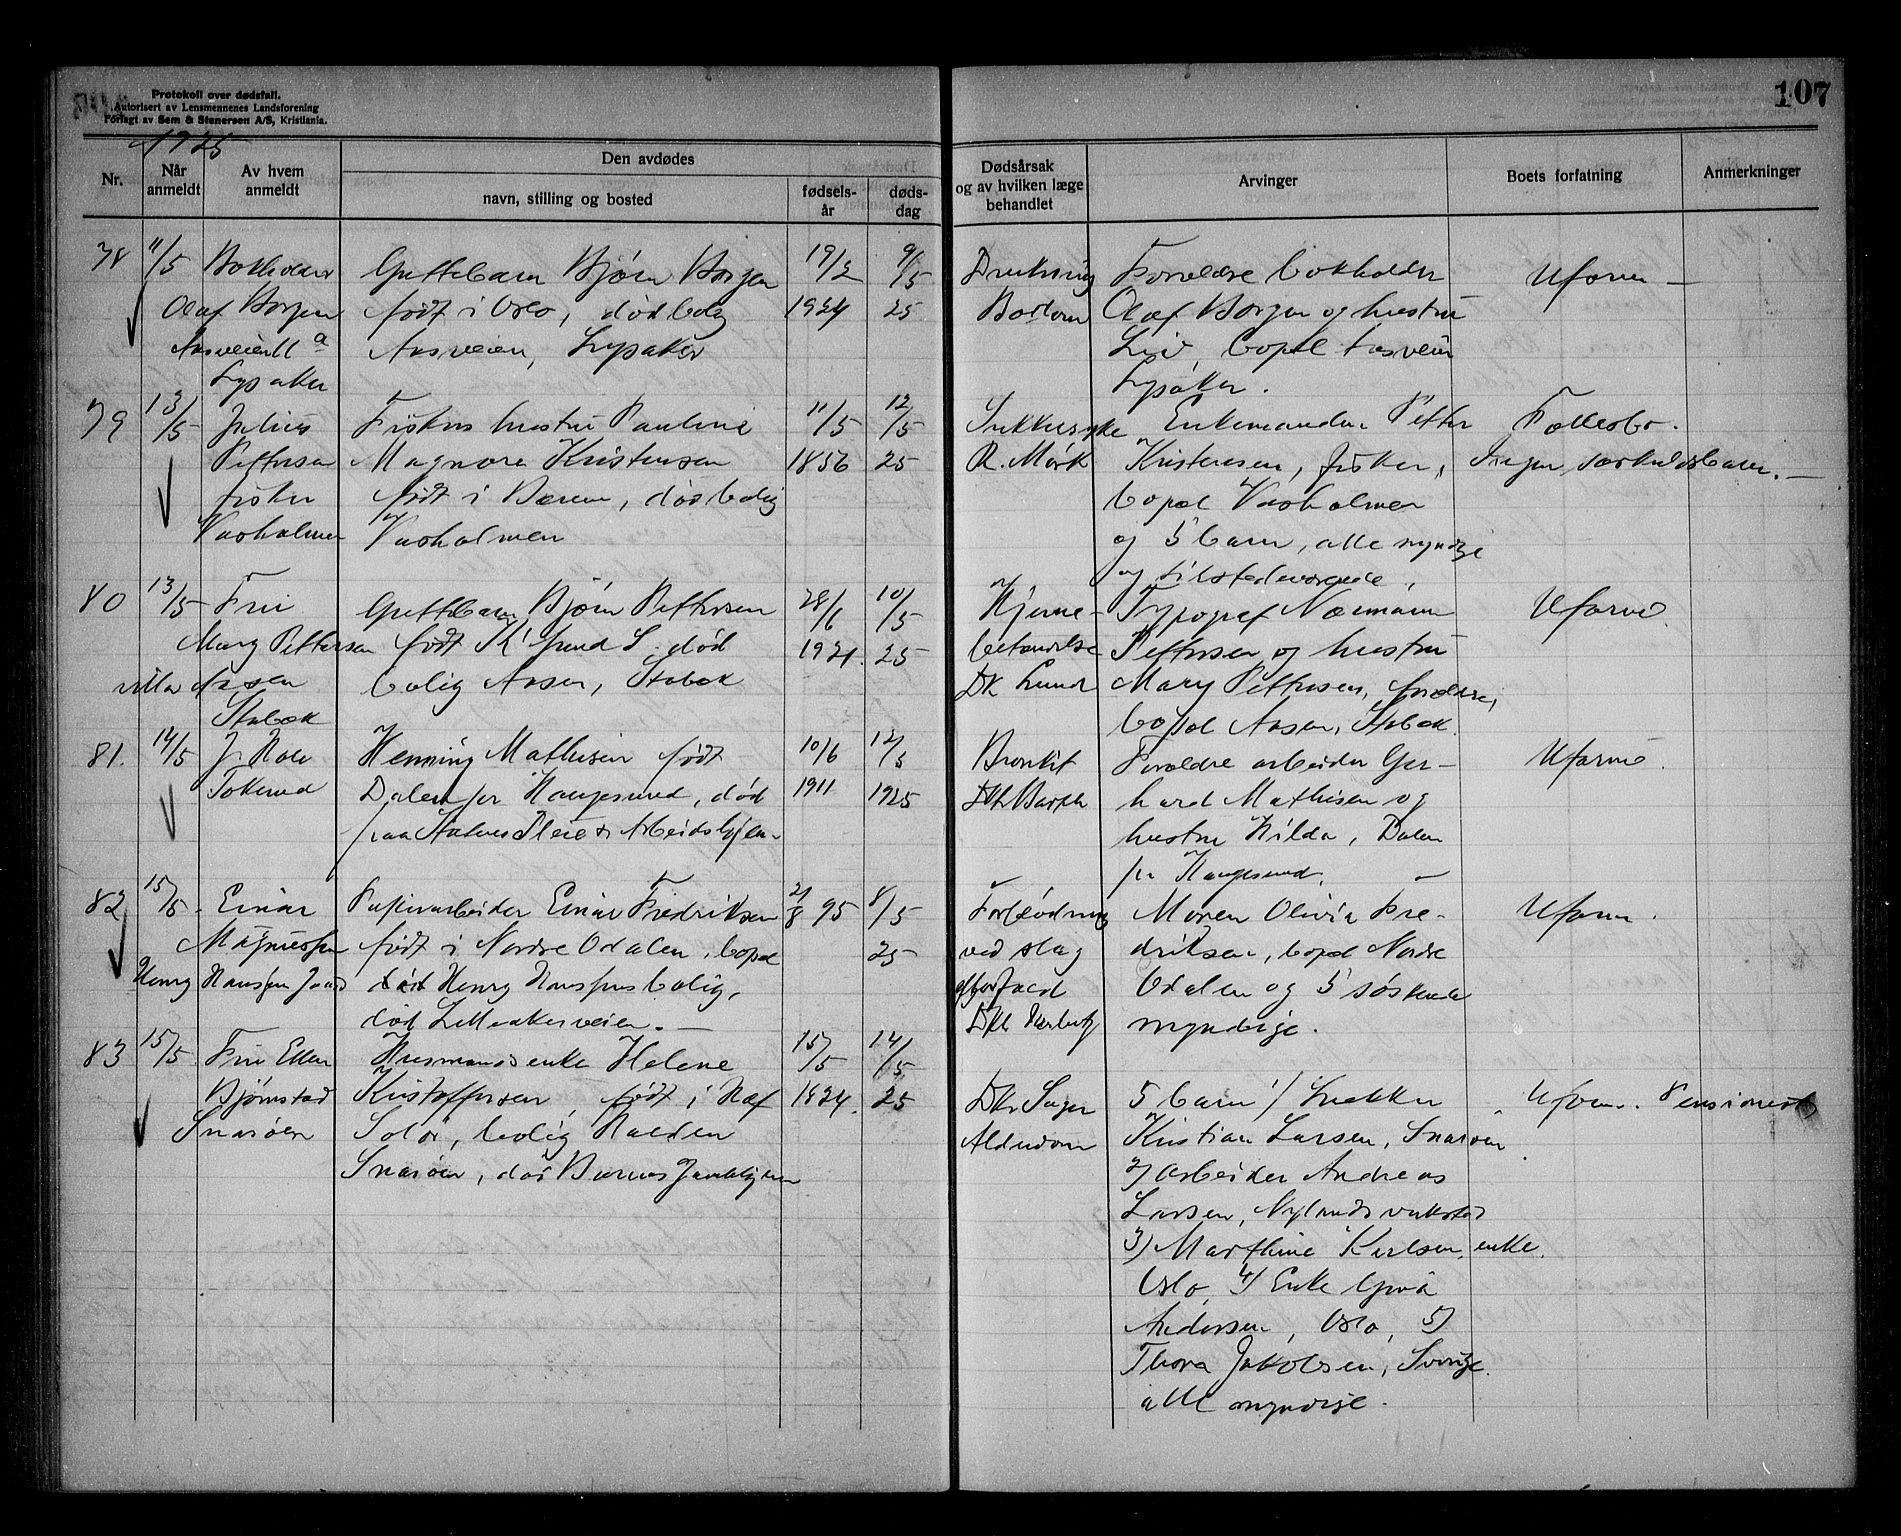 Protokoll over dødsfall.
Autorisert av Lensmennenes Landsforening
Forlagt av Sem & Stenersen A/S, Kristiania.
107
1925
Nr.
Når anmeldt
Av hvem anmeldt
Den avdødes
navn, stilling og bosted
fødsels-år
døds-dag
Dødsårsak og av hvilken læge behandlet
Arvinger
Boets forfatning
Anmerkninger
78 11/5 Bokholder Guttebarn Bjørn Borgen 19/2 9/5 Drukning Forældre bokholder Uformu
Olaf Borgen født i Oslo, død bolig 1924 25 Olaf Borgen og hustru
Aasveien 11 a Aasveien, Lysaker Liv, bopæl Aasveien
Lysaker Lysaker.
79 13/5 Julius Fiskers hustru Pauline 11/5 12/5 Sukkersyke Enkemanden Petter Fællesbo.
Pettersen Magnora Kristensen 1856 25 R. Mørk Kristensen, fisker, Ingen særkuldsbarn.
fisker født i Bærum, død bolig bopæl Vasholmen
Vasholmen Vasholmen og 5 barn, alle myndige
og tilstedeværende.
80 13/5 Fru Guttebarn Bjørn Pettersen 28/6 10/5 Hjerne- Typograf Uformu
Mary Pettersen født Kr'sund S. død 1921. 25 betændelse Pettersen og hustru
villa Aasen bolig Aasen, Stabæk Dr. Lund Mary Pettersen, forældre,
Stabæk bopæl Aasen, Stabæk.
81. 14/5 J. Henning Mathisen født 10/6 12/5 Bronkit Forældre arbeider Ger- Uformu.
Tokerud Dalen pr Haugesund, død 1911 1925 hard Mathisen og
paa Pleie & Arbeidshjem. hustru Hilda, Dalen
pr Haugesund.
82 15/5 Einar Papirarbeider Einar Fredriksen 21/8 95 8/5 Forblødning Moren Olivia Fre- Uformu.
Magnussen født i Nordre Odalen, bopæl 25 ved slag driksen, bopæl Nordre
Henry Hansens død Henry Hansens bolig, Odalen og 5 søskende
død Lilleakerveien. myndige.
83 15/5 Fru Ellen Husmands enke Helene 15/5 14/5
Bjørnstad Kristoffersen, født i 1824. 25 5 barn 1/ Snekker Uformu. Pensionert
Snarøen Solør, bolig Halden Alderdom Kristian Larsen, Snarøen
Snarøen, død Bærums Gamlehjem 2) Arbeider Andreas
Larsen, Nylands verksted
3) Marthine Karlsen, enke.
Oslo, 4) Enke
Andersen, Oslo, 5)
Thora Jakobsen, Sverige.
alle myndige.